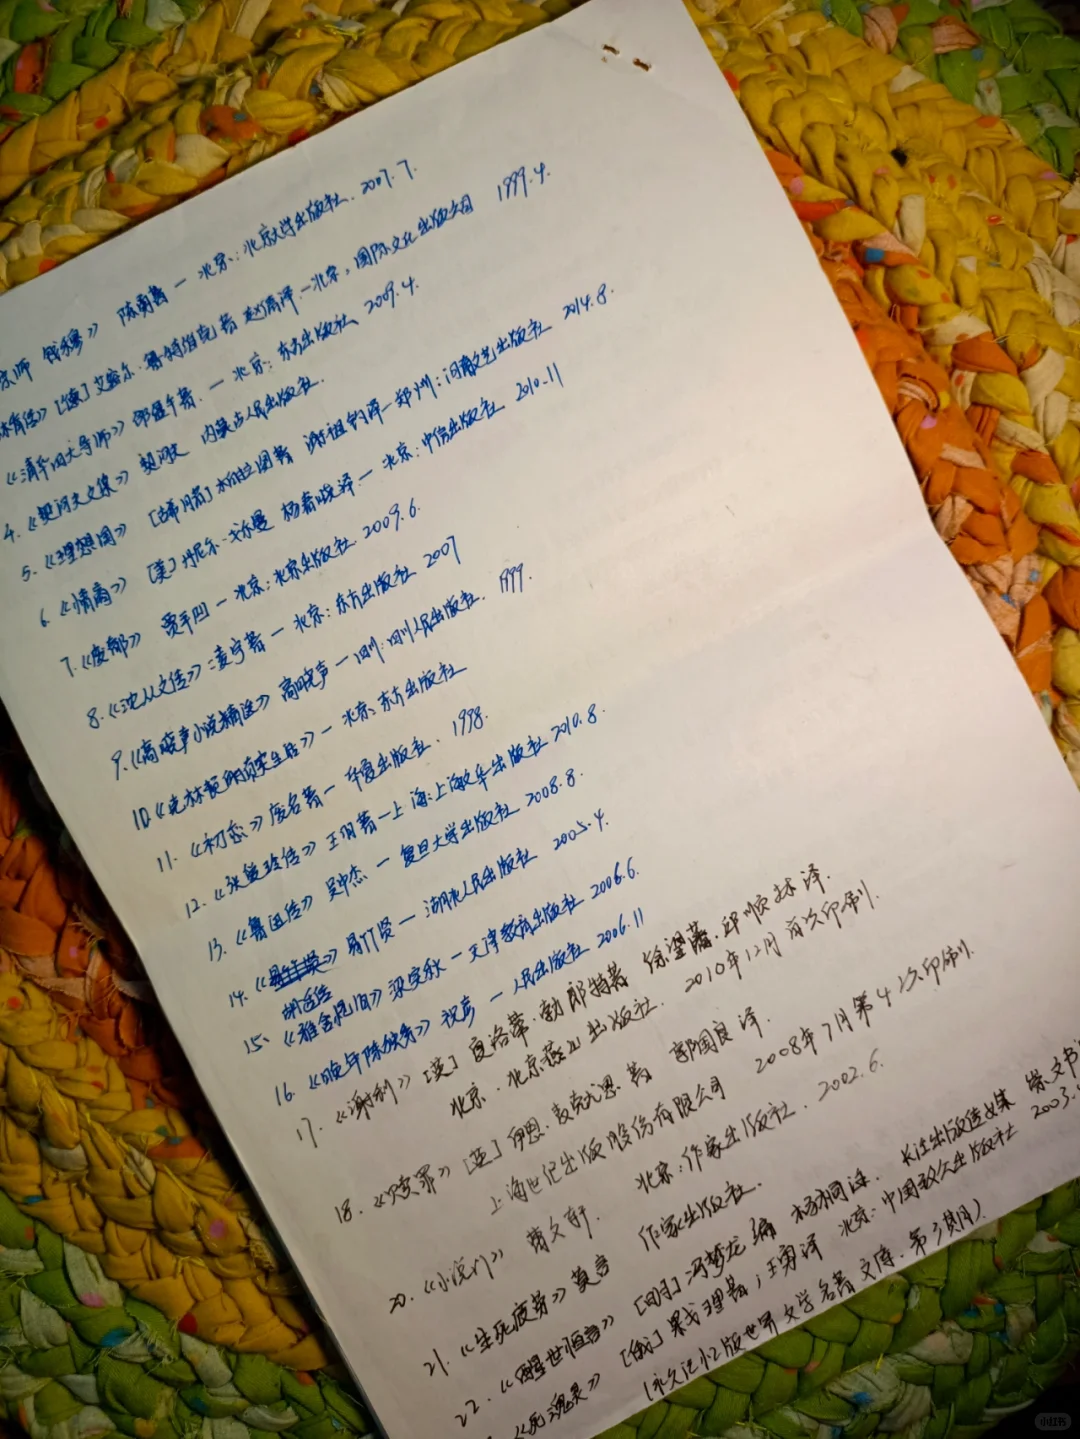 宗师 钱穆》 陈勇著 — 北京：北京大学出版社．2007.7.
》[德]艾密尔·鲁特维克著 译．—北京，国际文化出版公司 1999.4.
《清华四大导师》邵盈午著．— 北京：东方出版社 2009.4.
4.《契诃夫文集》契诃夫 内蒙古人民出版社．
5.《理想国》 [古希腊]柏拉图著 谢祖钧译—郑州：河南文艺出版社 2014.8.
6.《情商》 [美]丹尼尔·戈尔曼 杨春晓译 — 北京：中信出版社 2010-11
7.《废都》 贾平凹 — 北京：北京出版社．2009.6.
8.《沈从文传》凌宇著 — 北京：东方出版社 2007
9.《高晓声小说精选》高晓声 — 四川：四川人民出版社．1999.
10.《克林顿的真实生活》— 北京：东方出版社
11.《初恋》废名著 — 华夏出版社．1998.
12.《张爱玲传》王羽著 — 上海：上海文华出版社 2010.8.
13.《鲁迅传》吴中杰 — 复旦大学出版社 2008.8.
14.《》易竹贤 — 湖北人民出版社 2005.4.
胡适传
15.《雅舍忆旧》梁实秋 — 天津教育出版社 2006.6.
16.《晚年陈独秀》祝彦 — 人民出版社 2006.11
17.《谢利》[英]夏洛蒂·勃郎特著 徐望藩．邱顺林译．
北京．北京燕山出版社．2010年12月首次印刷．
18.《赎罪》[英]伊恩·麦克尤恩著 郭国良译．
上海世纪出版股份有限公司 2008年7月第4次印刷．
20.《小说门》 曹文轩． 北京：作家出版社．2002.6.
21.《生死疲劳》莫言 作家出版社．
22.《醒世恒言》 [明]冯梦龙编 杨桐注． 长江出版传媒 崇文书
《死魂灵》 [俄]果戈理著，王勇译 北京：中国致公出版社 2003.
（永久记忆版世界文学名著文库．第3期）
小红书